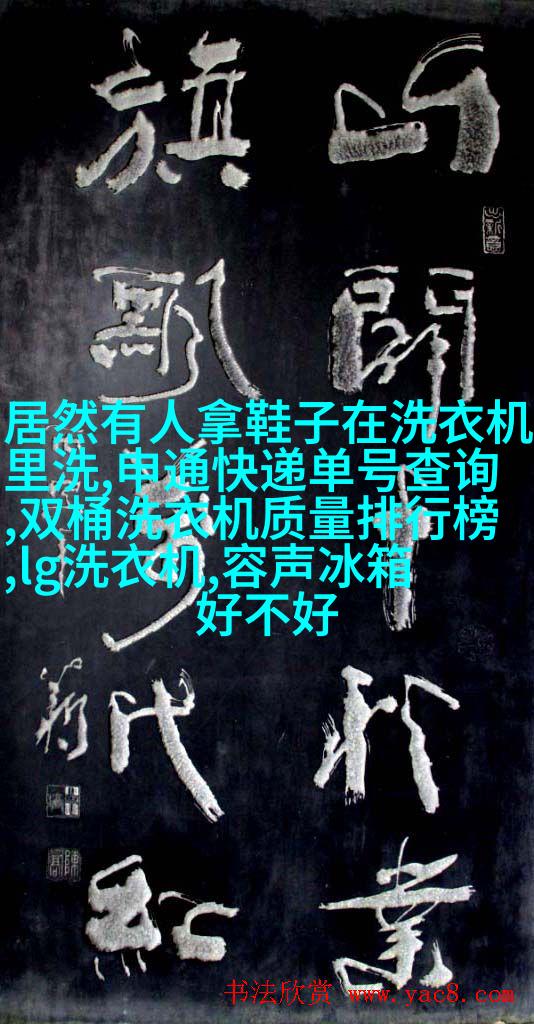 居然有人拿鞋子在洗衣机
里洗,申通快递单号查询
,双桶洗衣机质量排行榜
,lg洗衣机,容声冰箱
好不好
開千秋業
旗飘萬代紅
书法欣赏 www.yac8.com